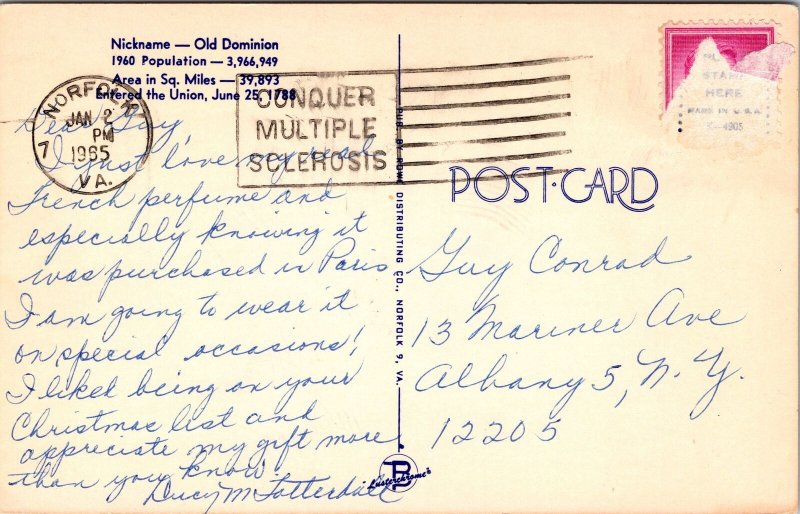 Nickname — Old Dominion
1960 Population — 3,966,949
Area in Sq. Miles — 39,893
Entered the Union, June 25, 1788
NORFOLK
JAN 2
PM
1965
VA.
7
CONQUER
MULTIPLE
SCLEROSIS
PLACE
STAMP
HERE
MADE IN U.S.A.
POST CARD
PUB. BY ROWE DISTRIBUTING CO., NORFOLK 9, VA.
Dear Guy,
I just love my real
French perfume and
especially knowing it
was purchased in Paris
I am going to wear it
on special occasions!
I liked being on your
Christmas list and
appreciate my gift more
than you know.
Lucy M.
Guy Conrad
13 Mariner Ave
Albany 5, N.Y.
12205
Lusterchrome